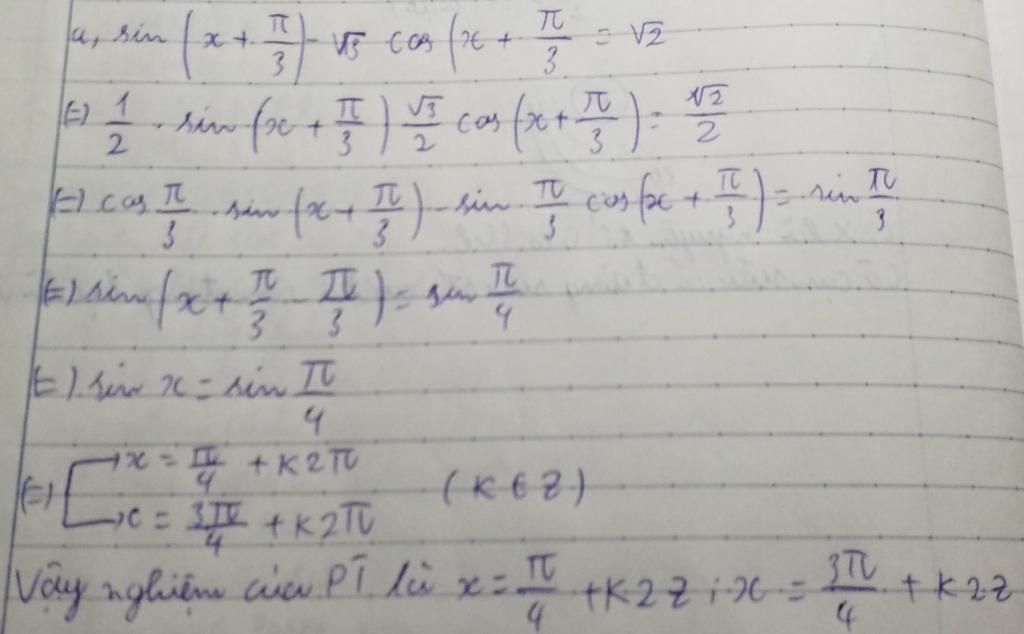 a, sin (x + π/3) - √3 cos (x + π/3 = √2
(=) 1/2 . sin (x + π/3) √3/2 cos (x + π/3) = √2/2
(=) cos π/3 . sin (x + π/3) - sin π/3 cos (x + π/3) = sin π/3
(=) sin (x + π/3 - π/3) = sin π/4
(=) sin x = sin π/4
(=) [ x = π/4 + K2π
x = 3π/4 + K2π (K ∈ Z)
Vậy nghiệm của PT là x = π/4 + K2Z ; x = 3π/4 + K2Z